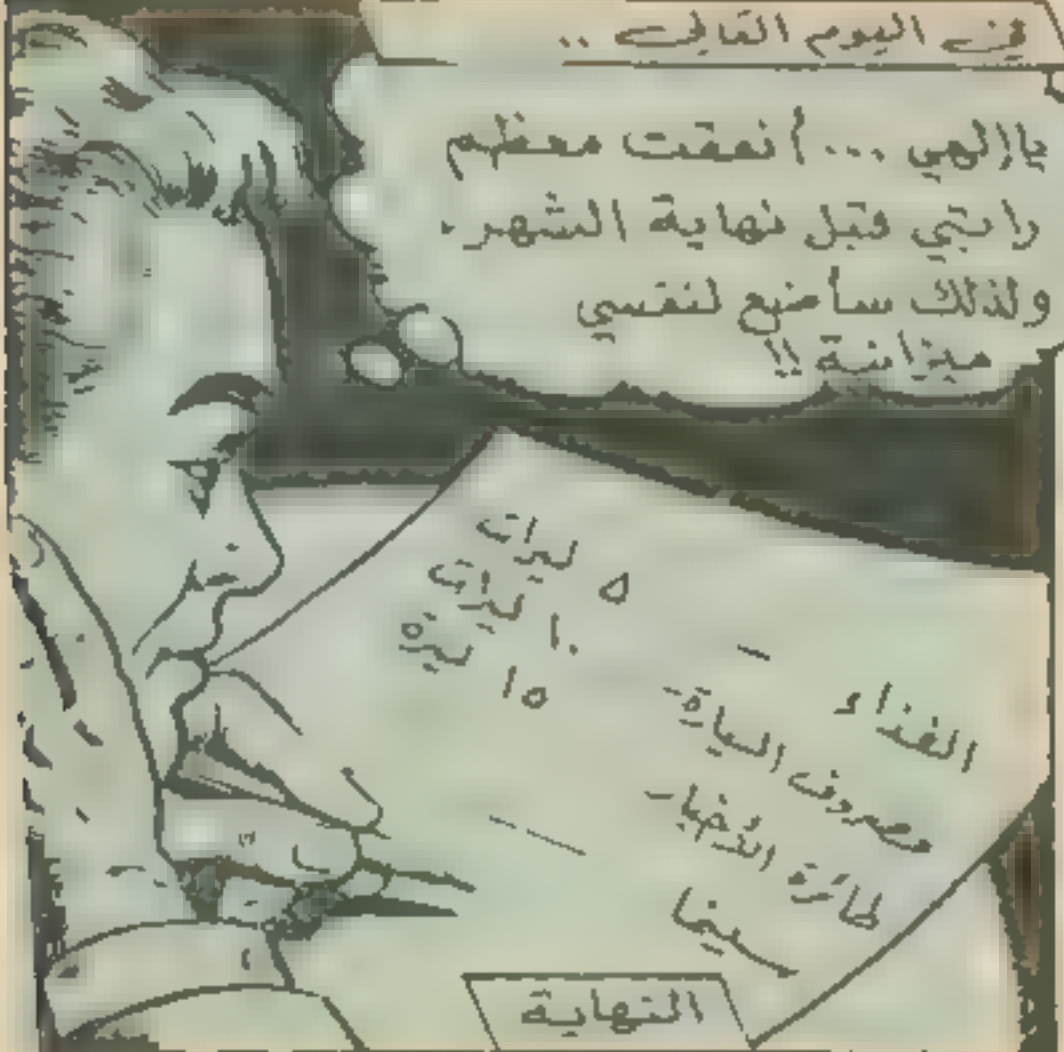 في اليوم التالي ..
ياإلهي ... أنفقت معظم
راتبي قبل نهاية الشهر.
ولذلك سأضع لنفسي
ميزانية !!
الغذاء - ٥ ليرات
مصروف السيارة - ١٠ ليرات
طائرة الأخبار - ١٥ ليرة
سينما
النهاية